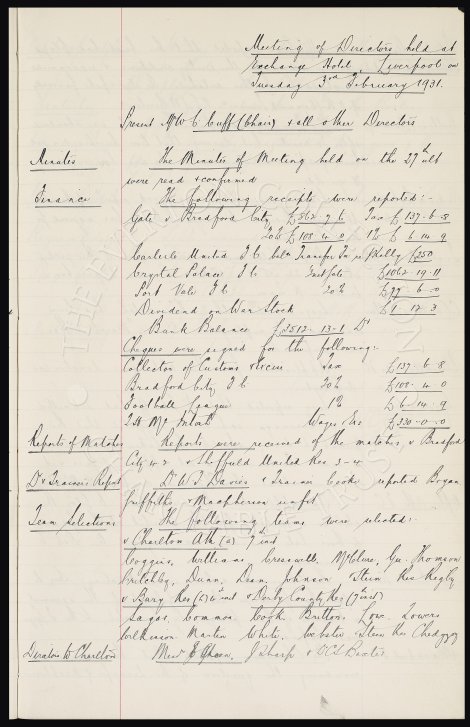 Meeting of Directors held at
Exchange Hotel Liverpool on
Tuesday 3rd February 1931.
Present Mr W C Cuff (Chair) & all other Directors
Minutes The Minutes of Meeting held on the 27th ult
were read & confirmed
Finance The following receipts were reported:-
Gate v Bradford City £862 9 6 Tax £137-6-8
20% £108 4 0 1% £6 14 9
Carlisle United F C Transfer Kelly £250
Crystal Palace F C £1062 19 11
Port Vale F C 20% £77 6 0
Dividend on War Stock £1 17 3
Bank Balance £3512-13-1 Dr
Cheques were signed for the following:-
Collector of Customs & Excise Tax £137-6-8
Bradford City F C 20% £108-4-0
Football League 1% £6-14-9
Wages £330-0-0
Reports of Matches Reports were received of the matches v Bradford
City 4-2 v Sheffield United Res 3-4
Dr & Trainers Report Dr W J Davies & Trainer Cooke reported Bryan
Griffiths & Macpherson unfit
Team Selections The following teams were selected:-
v Charlton Ath (a) 7th inst
Coggins, Williams Cresswell. McClure, Gee, Thomson
Critchley, Dunn, Dean, Johnson, Stein Res Rigby
v Bury Res v Derby County Res (7 inst)
Lagos Common Cook. Britton, Low. Towers
Wilkinson Martin White, Webster
Directors to Charlton Messrs E Green, J Sharp & Baxter